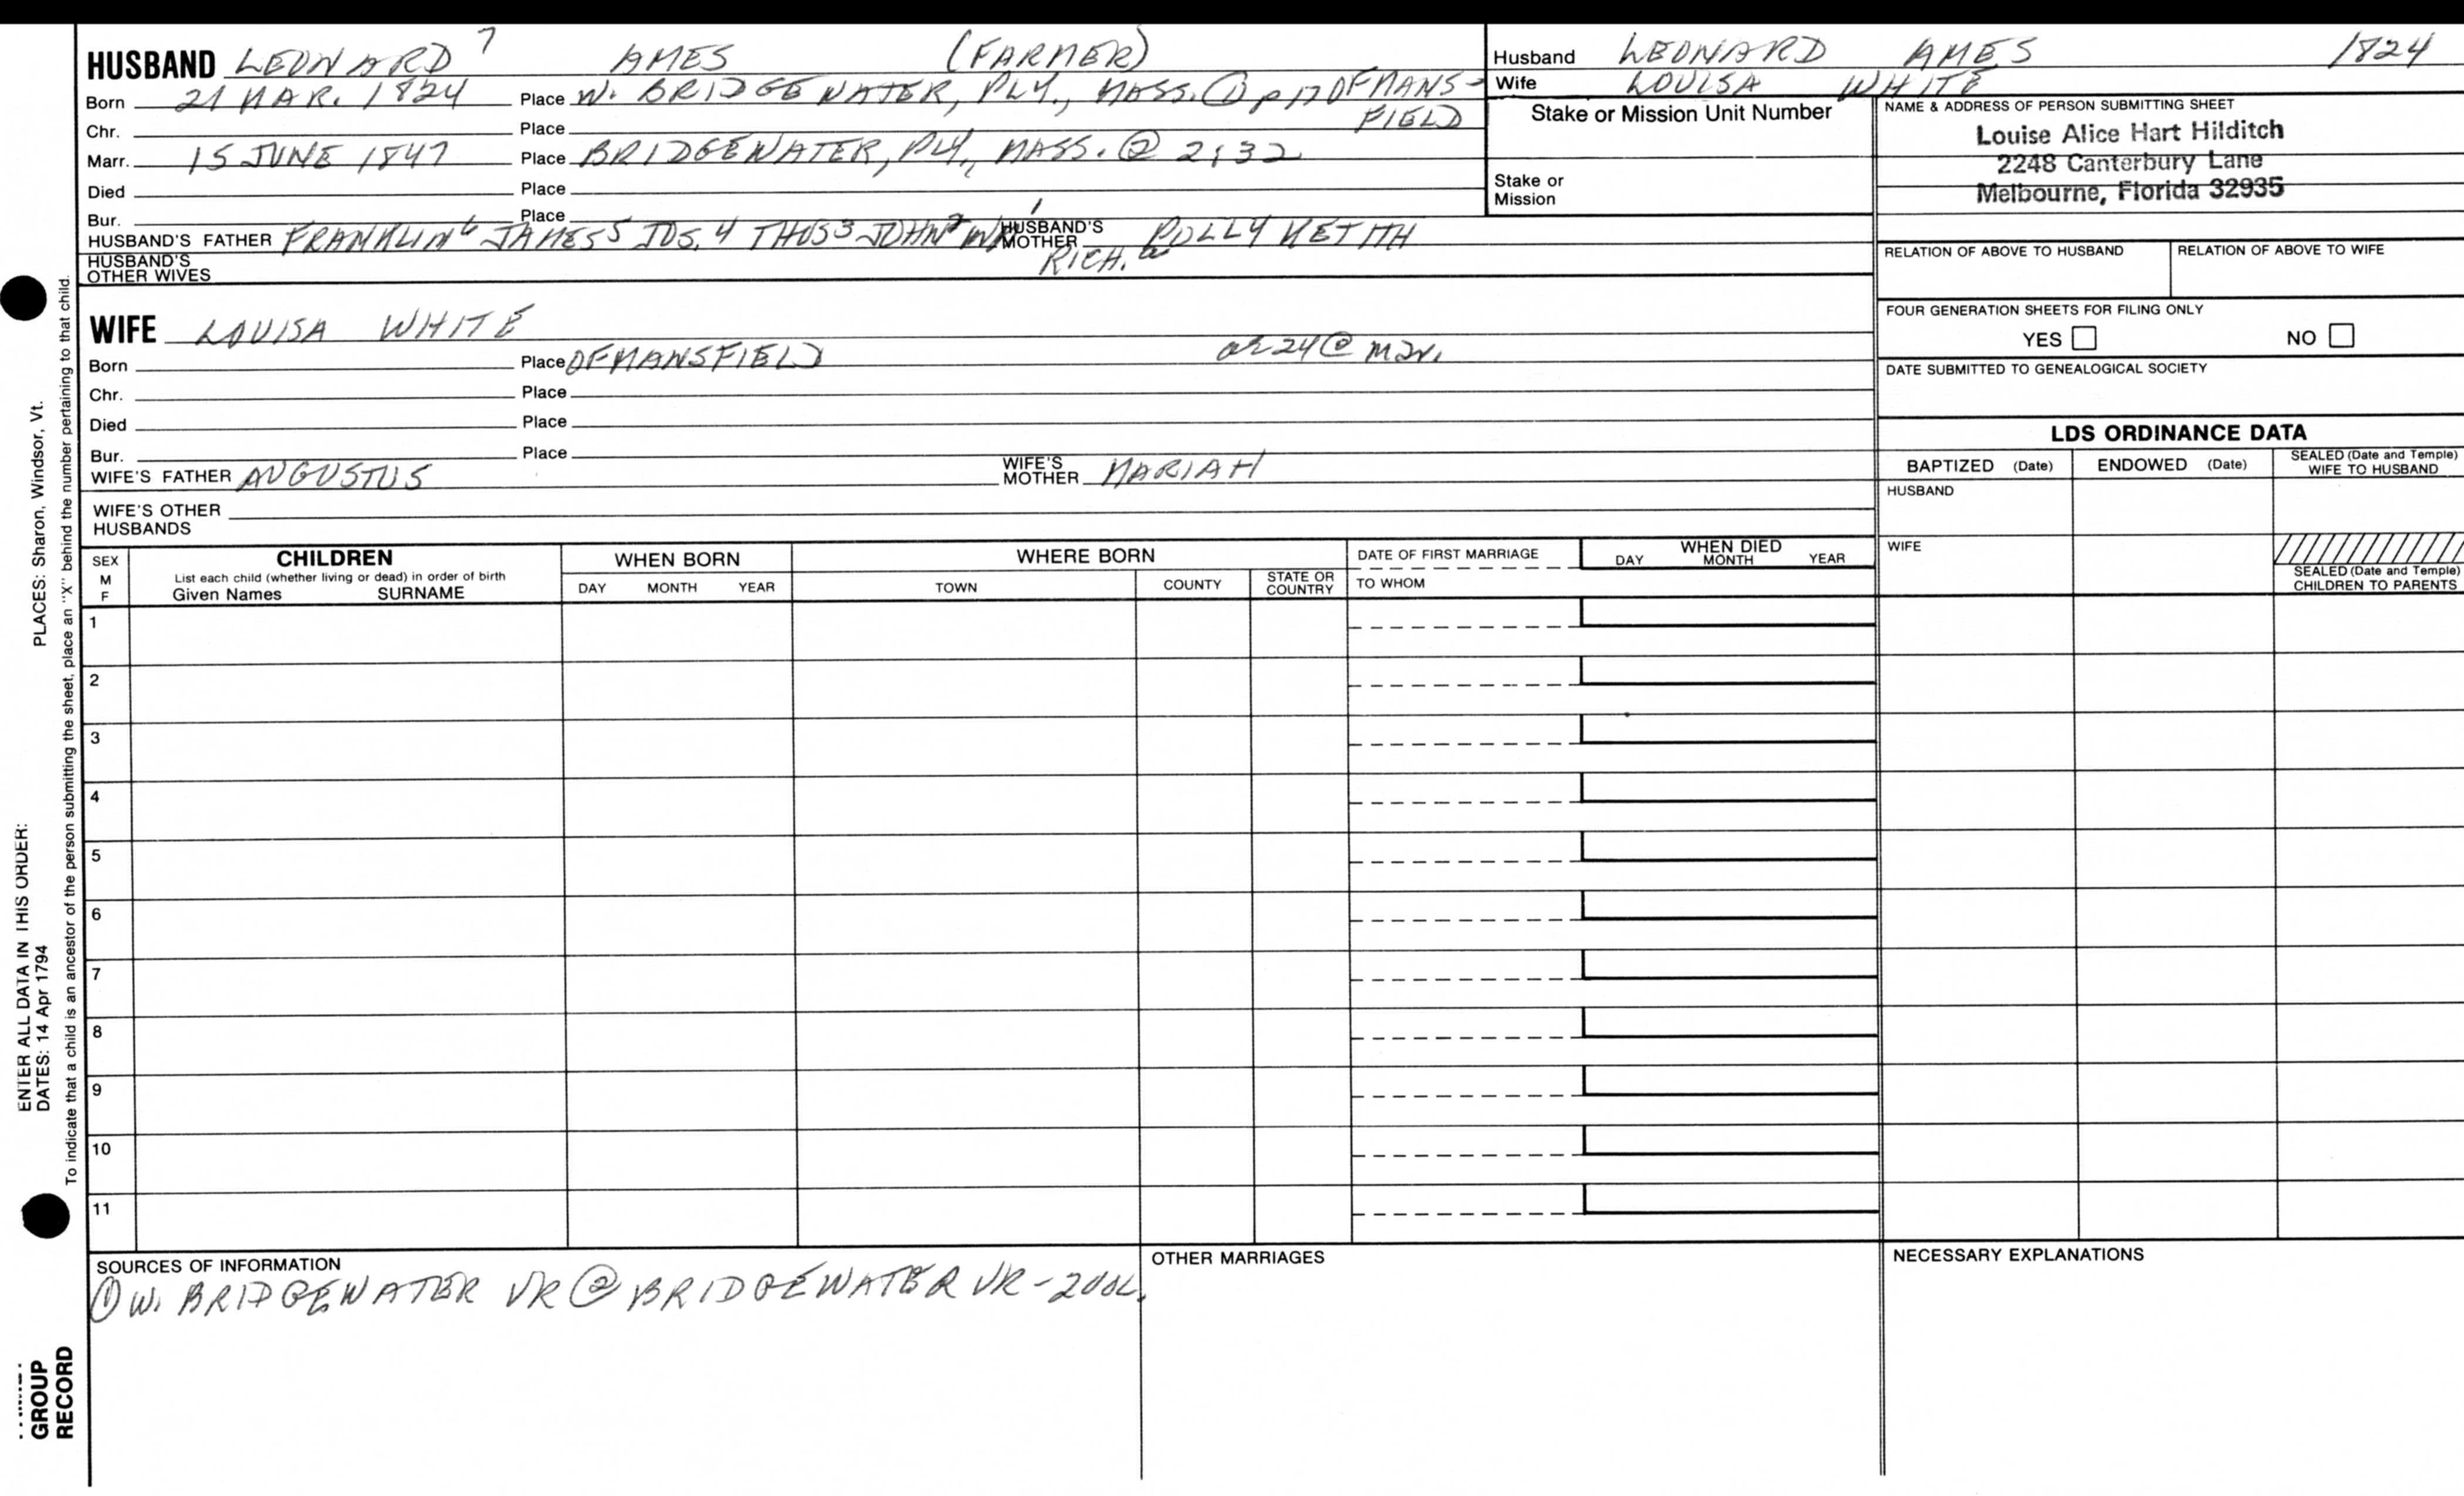 HUSBAND LEONARD 7 AMES (FARMER)
Born 21 MAR. 1824 Place W. BRIDGEWATER, PLY., MASS. ① p 17 OF MANS-
FIELD
Chr. Place
Marr. 15 JUNE 1847 Place BRIDGEWATER, PLY, MASS. @ 2; 32
Died Place
Bur. Place
HUSBAND'S FATHER FRANKLIN 6 JAMES 5 JOS. 4 THOS 3 JOHN 2 WM 1 HUSBAND'S MOTHER POLLY KEITH
RICH. a
HUSBAND'S OTHER WIVES
Husband LEONARD AMES 1824
Wife LOUISA WHITE
Stake or Mission Unit Number
Stake or
Mission
NAME & ADDRESS OF PERSON SUBMITTING SHEET
Louise Alice Hart Hilditch
2248 Canterbury Lane
Melbourne, Florida 32935
RELATION OF ABOVE TO HUSBAND RELATION OF ABOVE TO WIFE
FOUR GENERATION SHEETS FOR FILING ONLY
YES NO
DATE SUBMITTED TO GENEALOGICAL SOCIETY
WIFE LOUISA WHITE
Born Place OF MANSFIELD ae 24 @ mar.
Chr. Place
Died Place
Bur. Place
WIFE'S FATHER AUGUSTUS WIFE'S MOTHER MARIAH
WIFE'S OTHER
HUSBANDS
LDS ORDINANCE DATA
BAPTIZED (Date) ENDOWED (Date) SEALED (Date and Temple) WIFE TO HUSBAND
HUSBAND
WIFE
SEALED (Date and Temple)
CHILDREN TO PARENTS
SEX
M
F
CHILDREN
List each child (whether living or dead) in order of birth
Given Names SURNAME
WHEN BORN
DAY MONTH YEAR
WHERE BORN
TOWN COUNTY STATE OR COUNTRY
DATE OF FIRST MARRIAGE
TO WHOM
WHEN DIED
DAY MONTH YEAR
1
2
3
4
5
6
7
8
9
10
11
SOURCES OF INFORMATION
① W. BRIDGEWATER VR @ BRIDGEWATER VR-2VOL.
OTHER MARRIAGES
NECESSARY EXPLANATIONS
PLACES: Sharon, Windsor, Vt.
ENTER ALL DATA IN THIS ORDER:
DATES: 14 Apr 1794
To indicate that a child is an ancestor of the person submitting the sheet, place an "X" behind the number pertaining to that child.
GROUP
RECORD